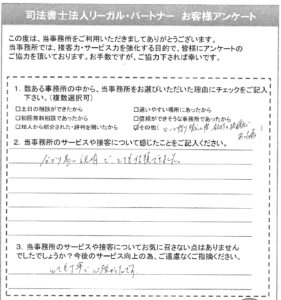 司法書士法人リーガル・パートナー お客様アンケート
この度は、当事務所をご利用いただきましてありがとうございます。
当事務所では、接客力・サービス力を強化する目的で、皆様にアンケートの
ご協力を頂いております。お手数ですが、ご協力下されば幸いです。
1. 数ある事務所の中から、当事務所をお選びいただいた理由にチェックをご記入
下さい。(複数選択可)
□土日の相談ができたから □通いやすい場所にあったから
□初回無料相談であったから □信頼ができそうな事務所であったから
□知人から紹介された・評判を聞いたから その他(
2. 当事務所のサービスや接客について感じたことをご記入ください。
3. 当事務所のサービスや接客についてお気に召さない点はありません
でしたでしょうか?今後のサービス向上の為、ご遠慮なくご指摘ください。